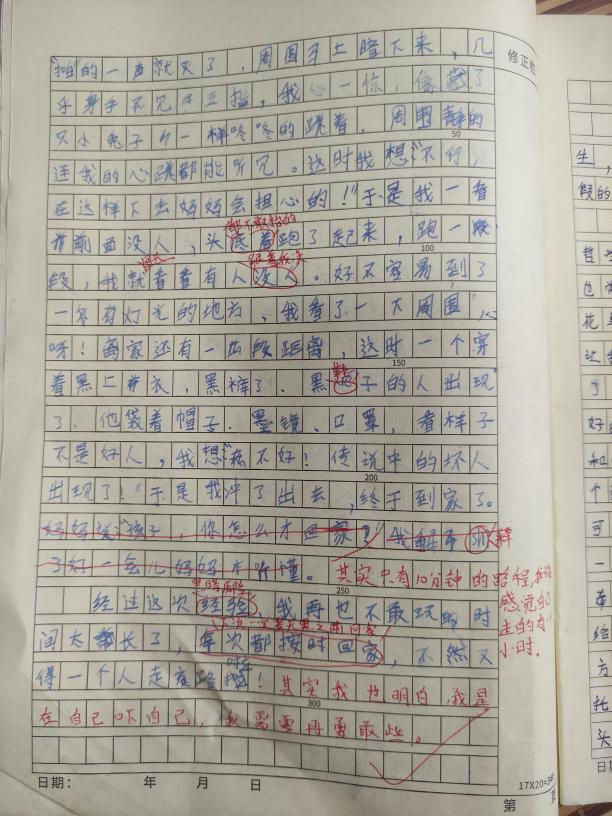 "拍"的一声就灭了，周围马上暗下来，几
修正栏
乎身手不见五指，我心一惊，像藏了
只小兔子一样咚咚的跳着，周围静的
50
连我的心跳都能听见。这时我想"不行，
在这样下去妈妈会担心的！"于是我一看
都不敢抬的
前面没人，头底着跑了起来，跑一
100
段，我就看看有人没人。好不容易到了
一个有灯光的地方，我看了一下周围，
呀！离家还有一段距离，这时一个穿
150
着黑上衣，黑裤子，黑鞋子的人出现
了，他袋着帽子、墨镜、口罩，看样子
不是好人，我想"不好！传说中的坏人
200
出现了！"于是我冲了出去，终于到家了。
妈妈说"孩子，你怎么才回家？"我解 释
了好一会儿妈妈才听懂。其实只有10分钟的路程，
250
感觉自己
走的有
小时.
经过这次经验，我再也不敢玩的时
间太长了，每次都按时回家，不然又
得一个人走夜路！其实我也明白，我是
300
在自己吓自己，我需要再勇敢些。
日期： 年 月 日
17X20=340
第 页